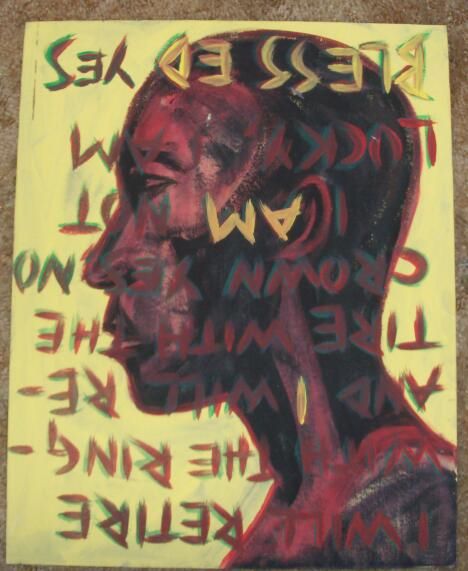 I WILL RETIRE
WITH THE RING-
AND I WILL RE-
TIRE WITH THE
CROWN YES NO
I AM NOT
LUCKY, AM
BLESSED YES